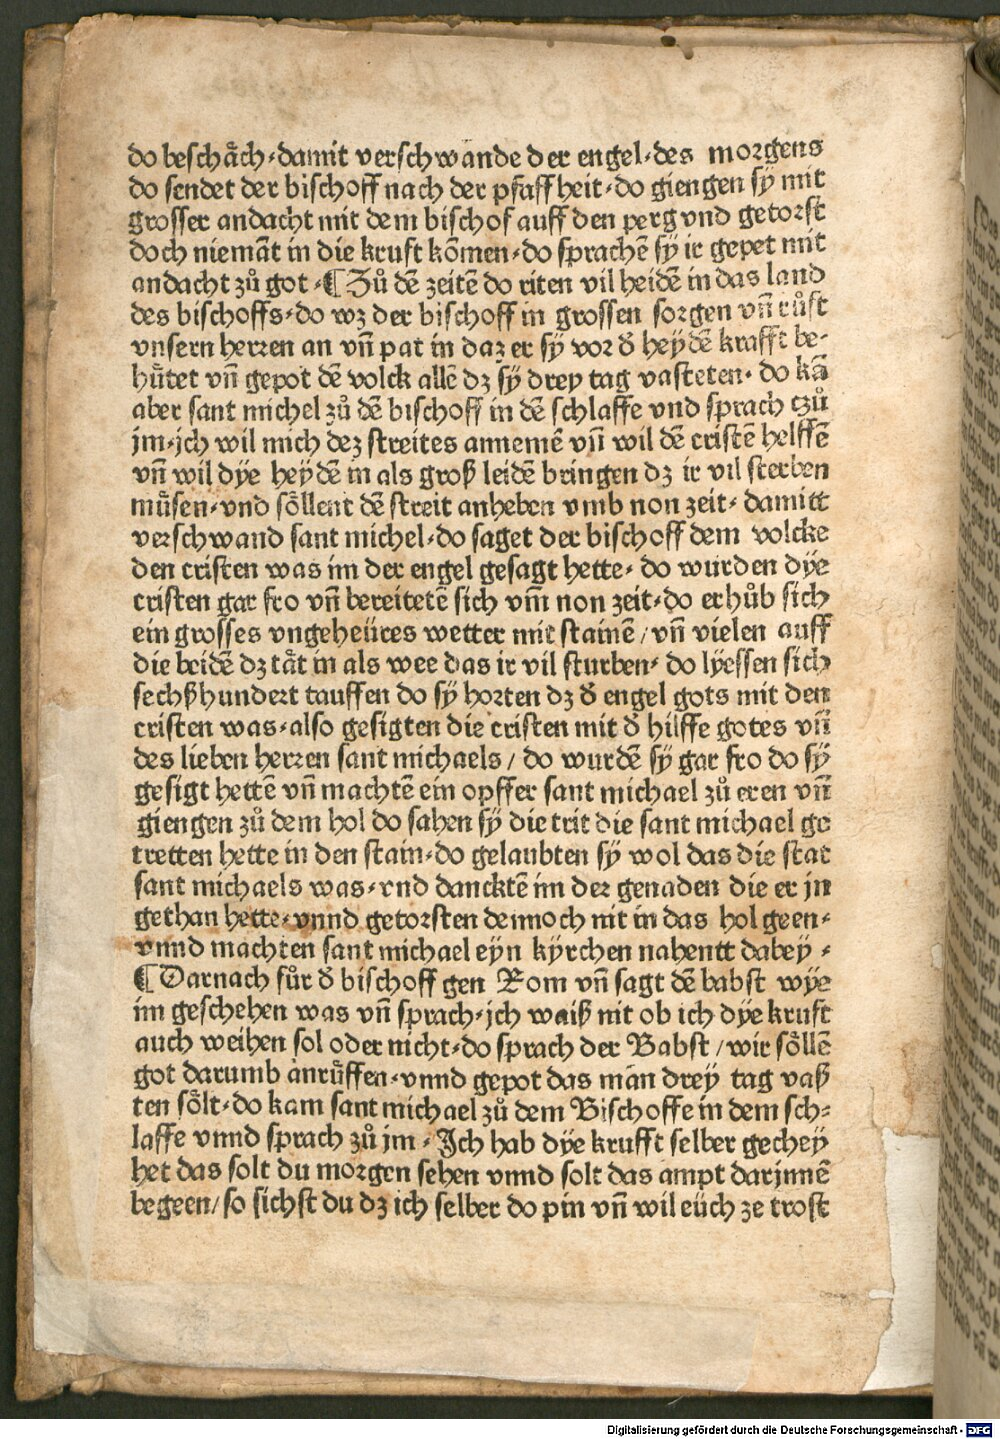 do beschåch·damit verschwande der engel·des morgens
do sendet der bischoff nach der pfaffheit·do giengen sÿ mit
grosser andacht mit dem bischof auff den perg vnd getorst
doch niemāt in die kruft kōmen·do sprachē sÿ ir gepet mit
andacht zů got·¶Zů dē zeitē do riten vil heidē in das land
des bischoffs·do wz der bischoff in grossen sorgen vn̄ růft
vnsern herren an vn̄ pat in daz er sÿ vor d̓ heydē krafft be-
hůtet vn̄ gepot dē volck allē dz sÿ drey tag vasteten·do kā
aber sant michel zů dē bischoff in dē schlaffe vnd sprach tzů
jm·jch wil mich dez streites annemē vn̄ wil dē cristē helffē
vn̄ wil dÿe heydē in als groß leidē bringen dz ir vil sterben
můsen·vnd sôllent dē streit anheben vmb non zeit·damitt
verschwand sant michel·do saget der bischoff dem volcke
den cristen was im der engel gesagt hette·do wurden dÿe
cristen gar fro vn̄ bereitetē sich vm̄ non zeit·do erhůb sich
ein grosses vngeheüres wetter mit stainē/vn̄ vielen auff
die heidē dz tåt in als wee das ir vil sturben·do lÿessen sich
sechßhundert tauffen do sÿ horten dz d̓ engel gots mit den
cristen was·also gesigten die cristen mit d̓ hilffe gotes vn̄
des lieben herren sant michaels/do wurdē sÿ gar fro do sÿ
gesigt hettē vn̄ machtē ein opffer sant michael zů eren vn̄
giengen zů dem hol do sahen sÿ die trit die sant michael ge
tretten hette in den stain·do gelaubten sÿ wol das die stat
sant michaels was·vnd dancktē im der genaden die er jn
gethan hette·vnnd getorsten dennoch nit in das hol geen·
vnnd machten sant michael eyn kÿrchen nahentt dabey·
¶Darnach fůr d̓ bischoff gen Rom vn̄ sagt dē babst wÿe
im geschehen was vn̄ sprach·jch waiß nit ob ich dÿe kruft
auch weihen sol oder nicht·do sprach der Babst/wir sôllē
got darumb anrůffen·vnnd gepot das man drey tag vaß
ten sôlt·do kam sant michael zů dem Bischoffe in dem sch-
laffe vnnd sprach zů jm·Ich hab dÿe krufft selber gechey
het das solt du morgen sehen vnnd solt das ampt darjnnē
begeen/so sichst du dz ich selber do pin vn̄ wil eüch ze trost
Digitalisierung gefördert durch die Deutsche Forschungsgemeinschaft - DFG